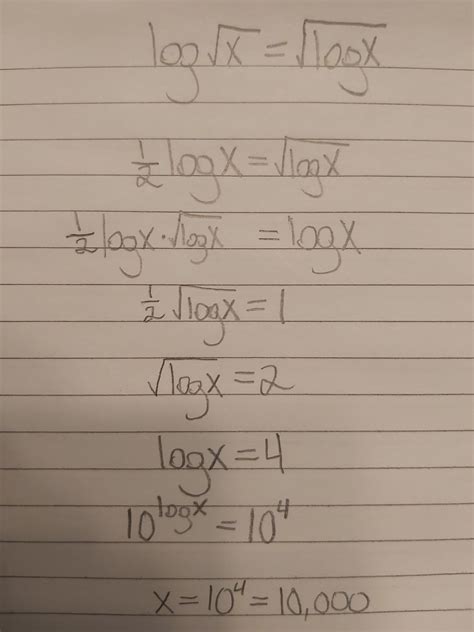 log√x = √logx
½ logx = √logx
½ logx · √logx = logx
½ √logx = 1
√logx = 2
logx = 4
10^logx = 10^4
x = 10^4 = 10,000